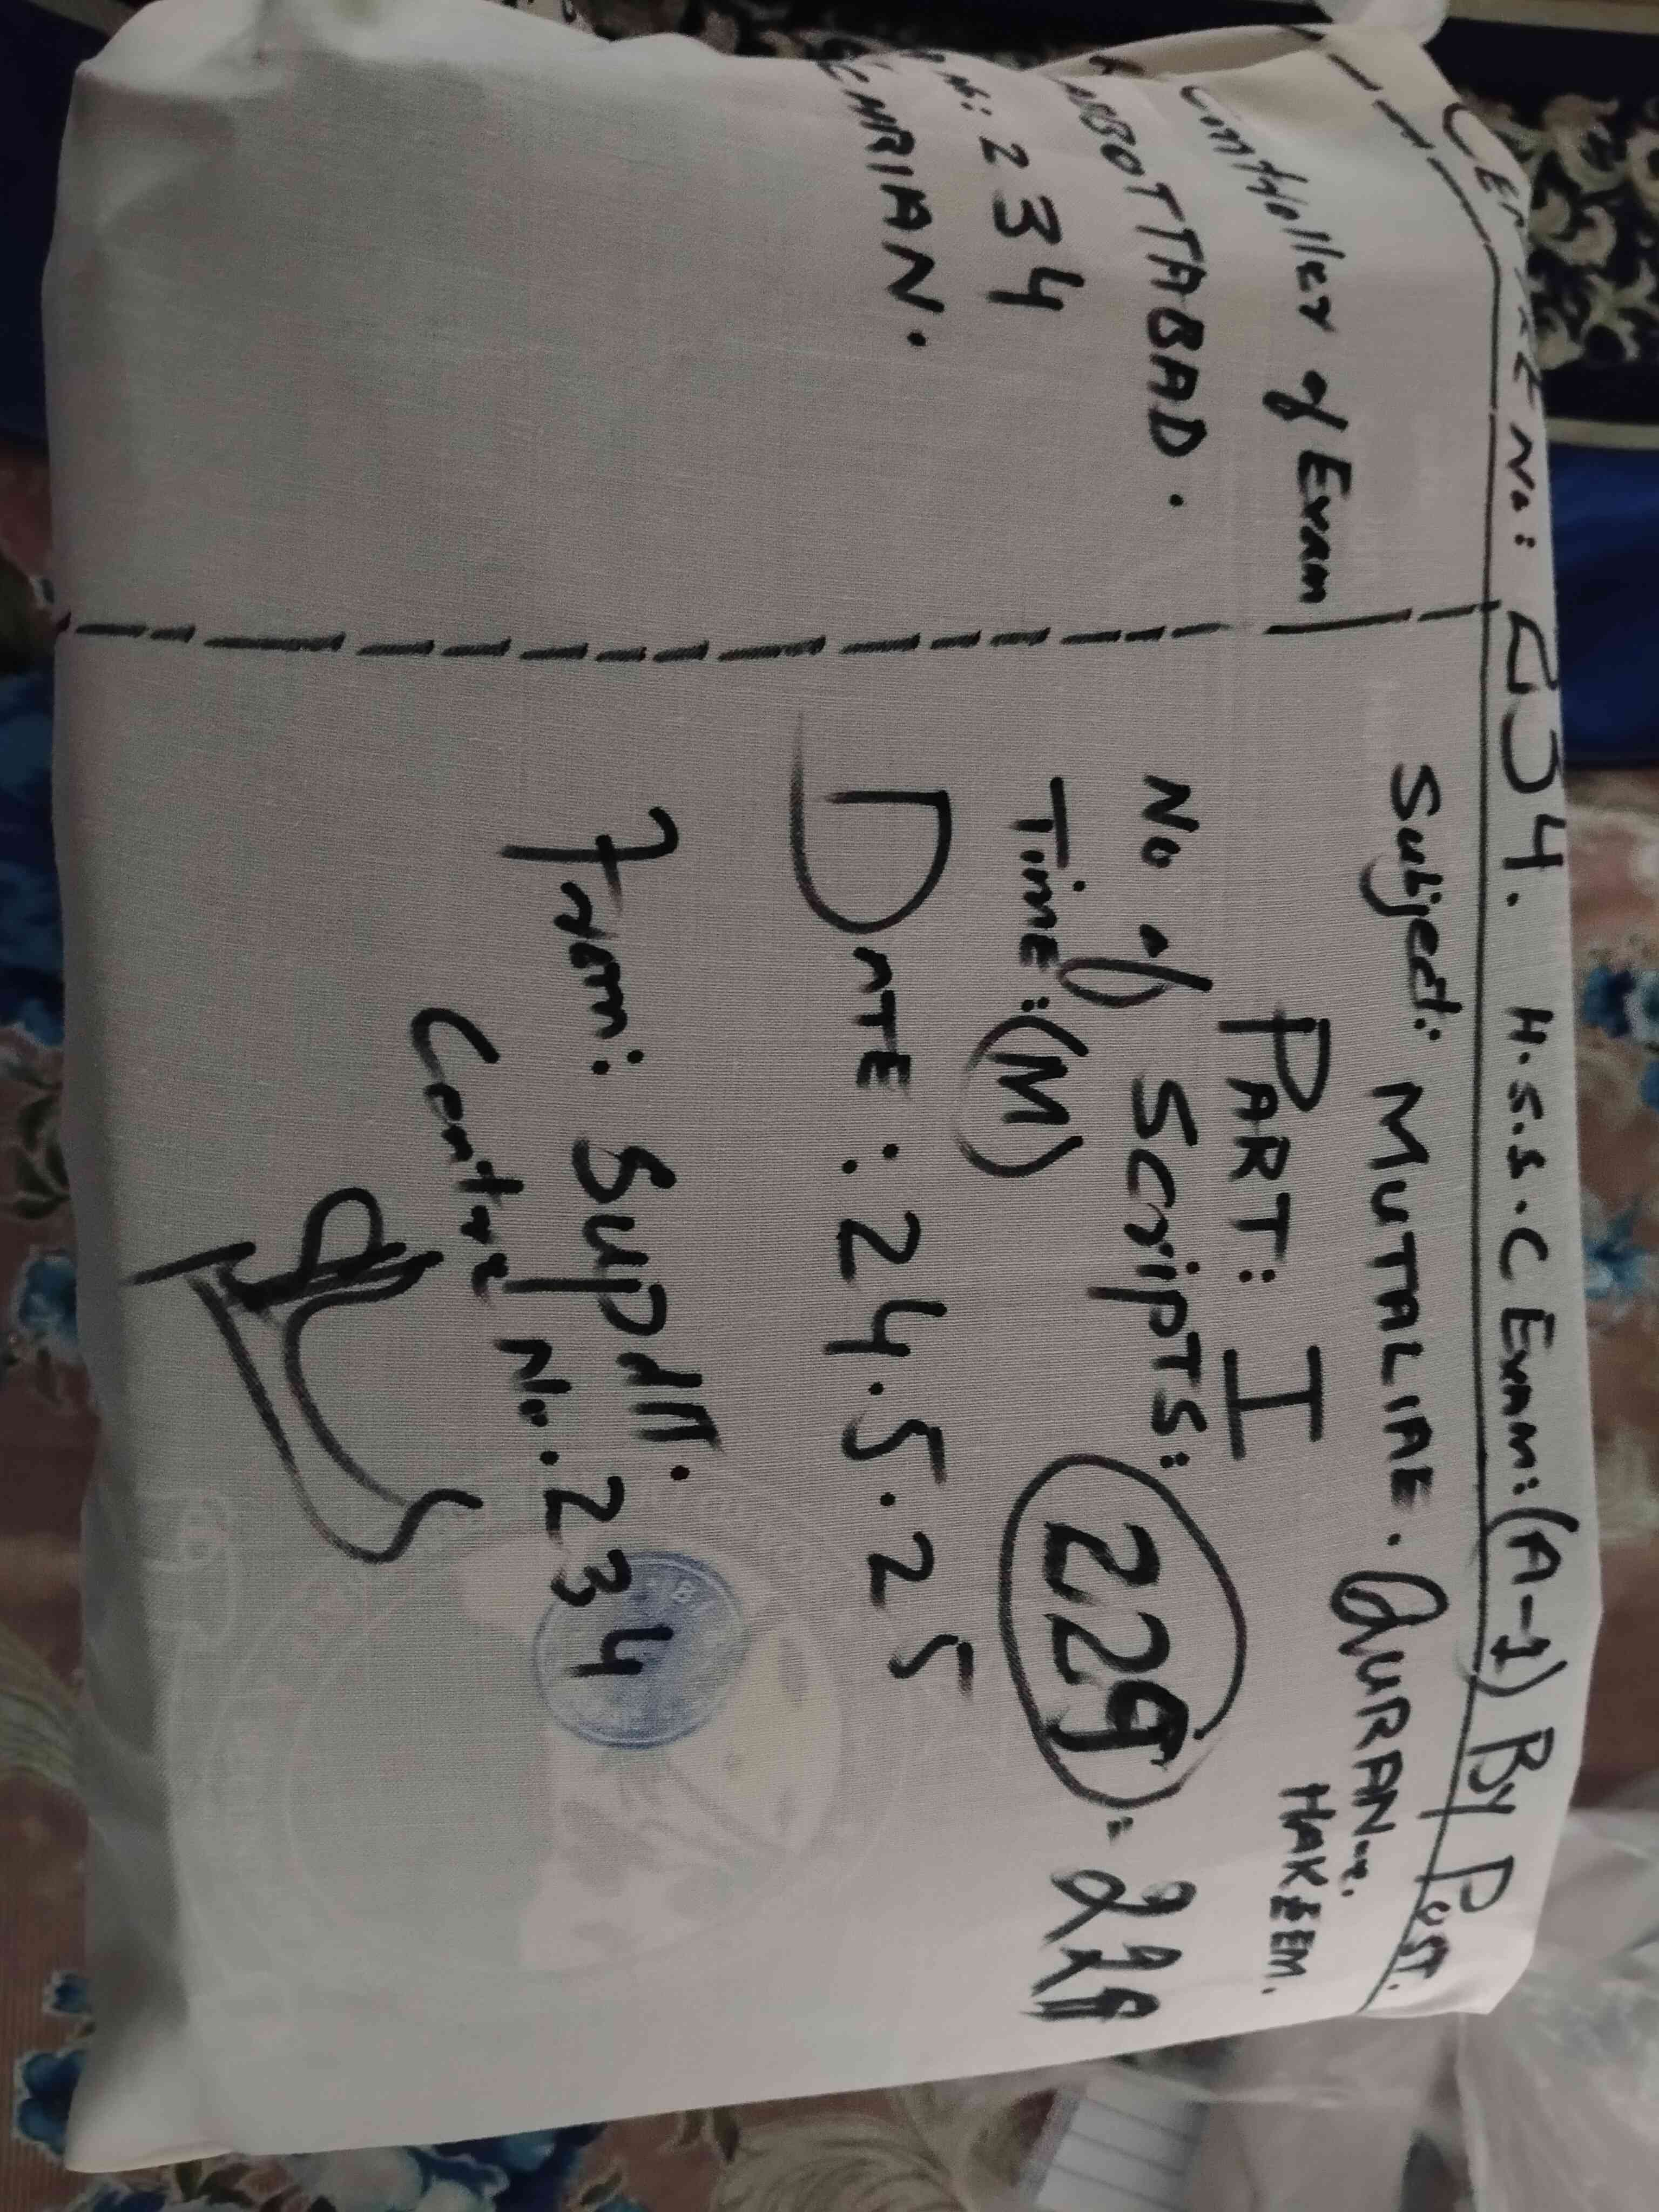 CENTRE No: 234. H.S.S.C EXAM: (A-1) By POST.
Controller of Exam
ABBOTTABAD.
234
Subject: MUTALIAE. QURAN-e.
HAKEEM.
PART: I
No of Scripts: 229 = 229
Time: (M)
DATE: 24.5.25
From: Supdtt.
Centre No. 234